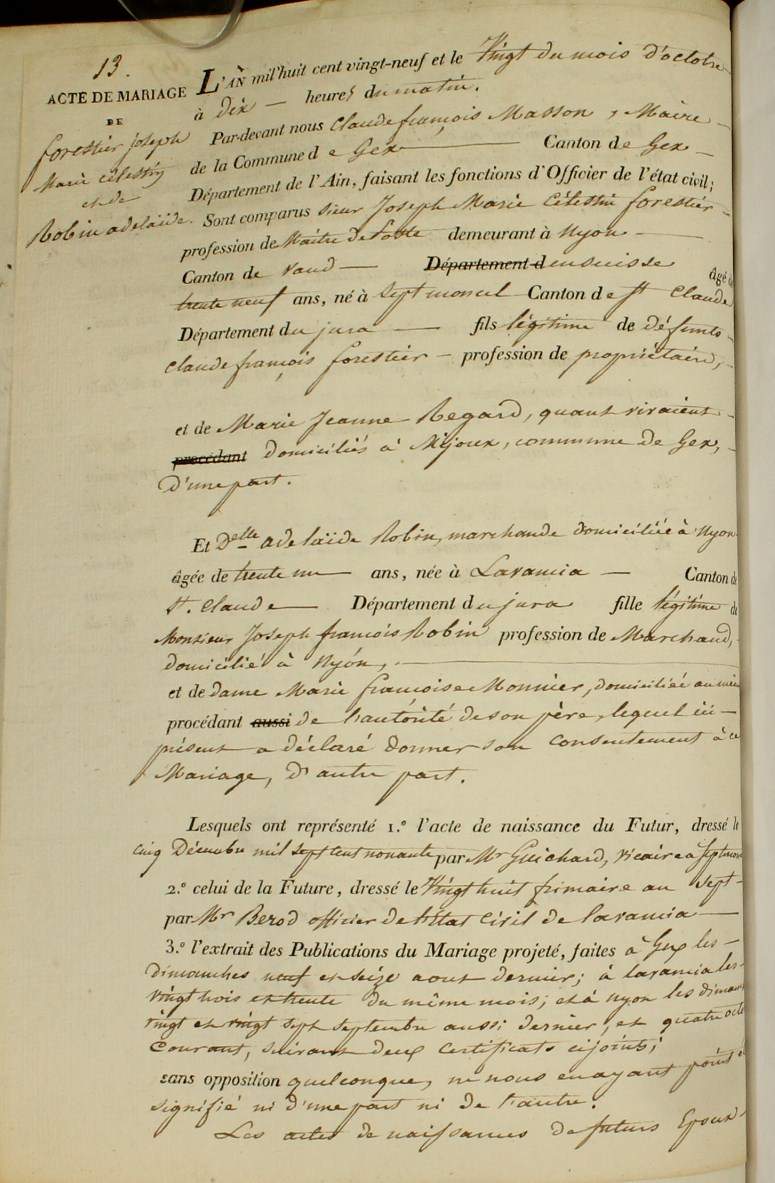 13.
ACTE DE MARIAGE
DE
forestier joseph
Marie célestin
et de
Robin adelaïde.
L'AN mil huit cent vingt-neuf et le Vingt du mois d'octobre
à dix — heures du matin.
Par-devant nous Claude françois Masson, Maire
de la Commune de Gex — Canton de Gex —
Département de l'Ain, faisant les fonctions d'Officier de l'état civil;
Sont comparus sieur Joseph Marie Célestin forestier
profession de Maître de Poste demeurant à Nyon —
Canton de Vaud — Département d en suisse âgé de
trente neuf ans, né à Septmoncel Canton de St Claude
Département du jura — fils légitime de défunts
Claude françois forestier — profession de propriétaire,
et de Marie Jeanne Regard, quant vivaient
procédant domiciliés à Mijoux, commune de Gex,
D'une part.
Et Delle adelaïde Robin, marchande domiciliée à Nyon
âgée de trente un ans, née à Lavancia — Canton de
St. Claude — Département du jura fille légitime de
Monsieur Joseph françois Robin profession de Marchand,
domicilié à Nyon, —
et de dame Marie francoise Monnier, domiciliée au même
procédant aussi de l'autorité de son père, lequel ici
présent a déclaré donner son consentement à ce
Mariage, D'autre part.
Lesquels ont représenté 1.° l'acte de naissance du Futur, dressé le
cinq Décembre mil sept cent nonante par Mr Guichard, vicaire à Septmon
2.° celui de la Future, dressé le Vingt huit frimaire an sept
par Mr Berod officier de l'Etat Civil de lavancia —
3.° l'extrait des Publications du Mariage projeté, faites à Gex les
dimanches neuf et seize aout dernier; à lavancia les
vingt trois et trente du même mois; et à nyon les dimanch
vingt et vingt sept septembre aussi dernier, et quatre octo
courant, suivant deux certificats cijoints;
sans opposition quelconque, ne nous en ayant point été
signifié ni d'une part ni de l'autre.
Les actes de naissances des futurs Epoux